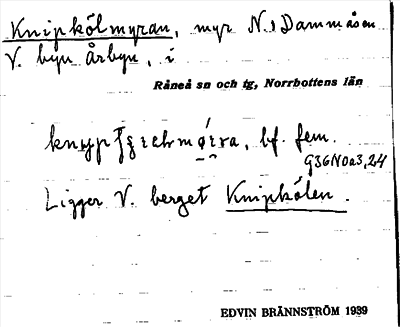 Knipkölmyran, myr N. Dammåsen
V. byn Årbyn, i
Råneå sn och tg, Norrbottens län
bf. fem.
Ligger V. berget Knipkölen.
EDVIN BRÄNNSTRÖM 1939